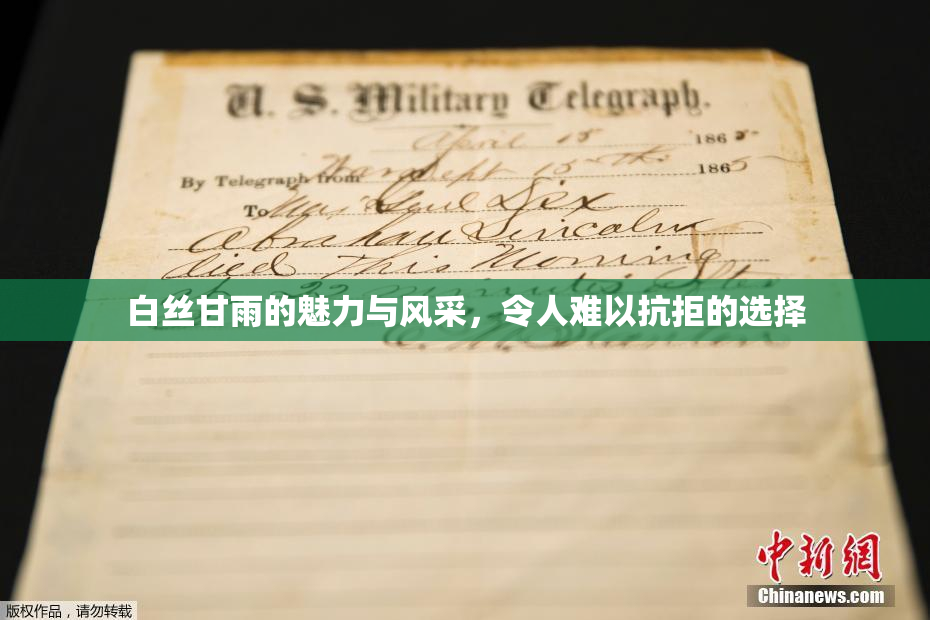 U. S. Military Telegraph.
April 15 1865
By Telegraph from War Dept 15th 1865
To Maj Genl Dix
Abraham Lincoln
died This Morning
22 minutes after
白丝甘雨的魅力与风采，令人难以抗拒的选择
E. M. Stanton
中新网
Chinanews.com
版权作品，请勿转载